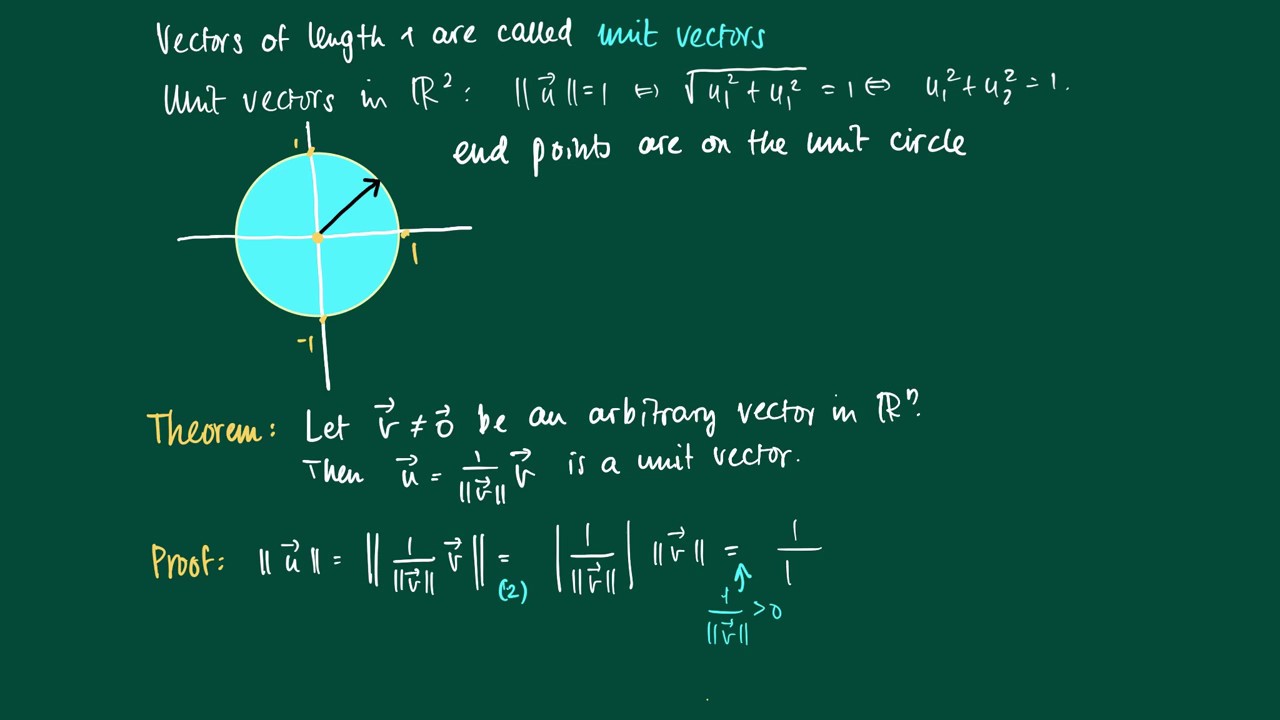 Vectors of length 1 are called unit vectors
Unit vectors in ℝ²: ||u⃗||=1 ⇔ √(u₁²+u₁²) = 1 ⇔ u₁²+u₂²=1.
end points are on the unit circle
1
1
-1
Theorem: Let v⃗ ≠ 0⃗ be an arbitrary vector in ℝⁿ.
Then u⃗ = 1/||v⃗|| v⃗ is a unit vector.
Proof: ||u⃗|| = || 1/||v⃗|| v⃗ || = | 1/||v⃗|| | ||v⃗|| = 1/|
(2)
1/||v⃗|| >0